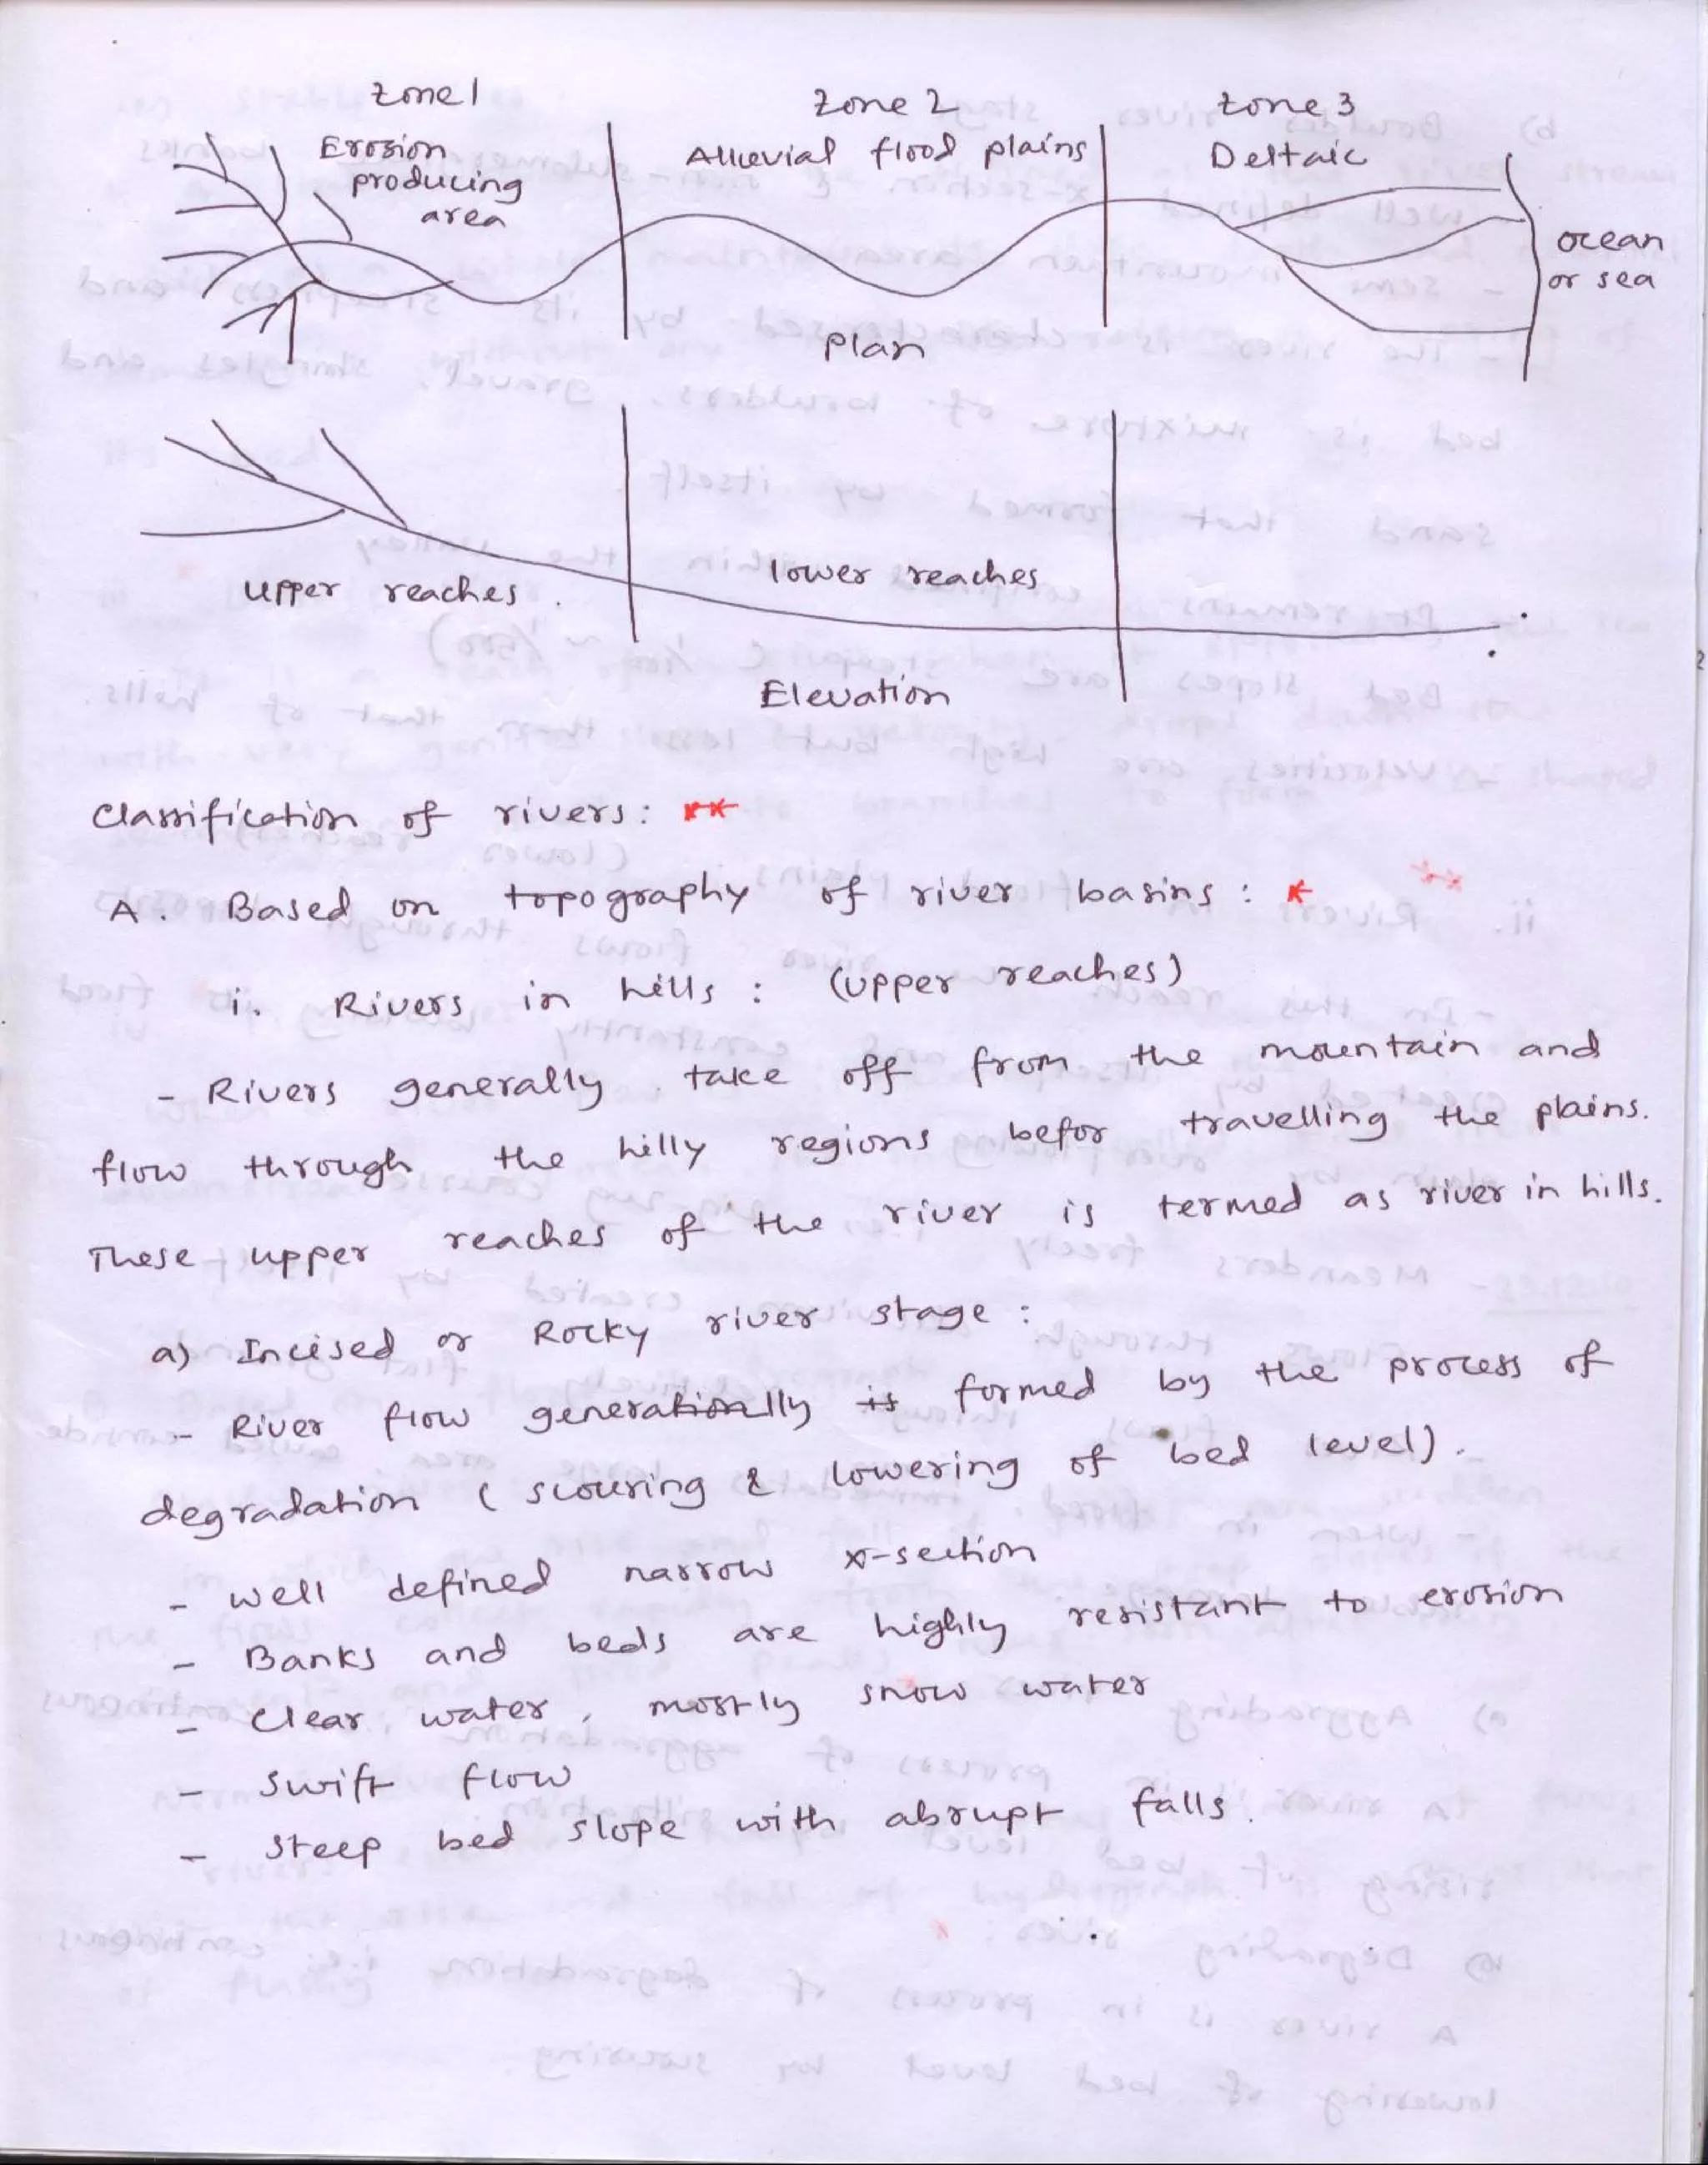 Zone 1
Zone 2
Zone 3
Erosion
producing
area
Alluevial flood plains
Deltaic
ocean
or sea
Plan
upper reaches.
lower reaches
Elevation
Classification of rivers: **
A. Based on topography of river basins: *
i. Rivers in hills: (upper reaches)
- Rivers generally take off from the mountain and
flow through the hilly regions befor travelling the plains.
These upper reaches of the river is termed as river in hills.
a) Incised or Rocky river stage:
- River flow generationally is formed by the process of
degradation (scouring & lowering of bed level).
- well defined narrow x-section
- Banks and beds are highly resistant to erosion
- Clear water, mostly snow water
- swift flow
- steep bed slope with abrupt falls.